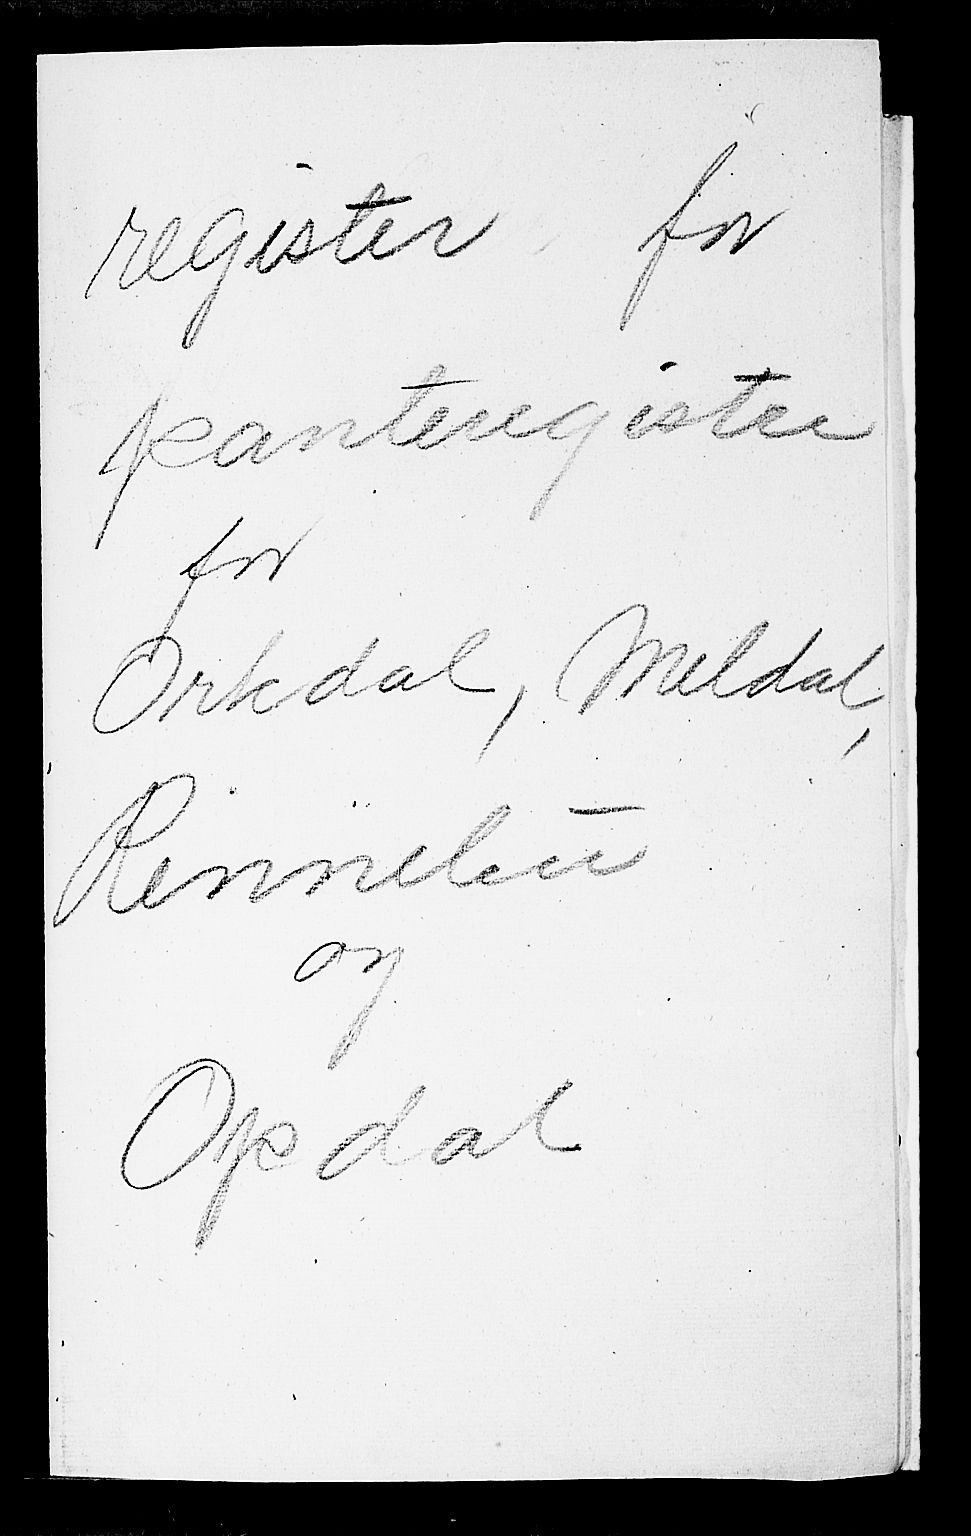 register for
panteregister
for
Orkdal, Meldal,
Rennebu
og
Opdal